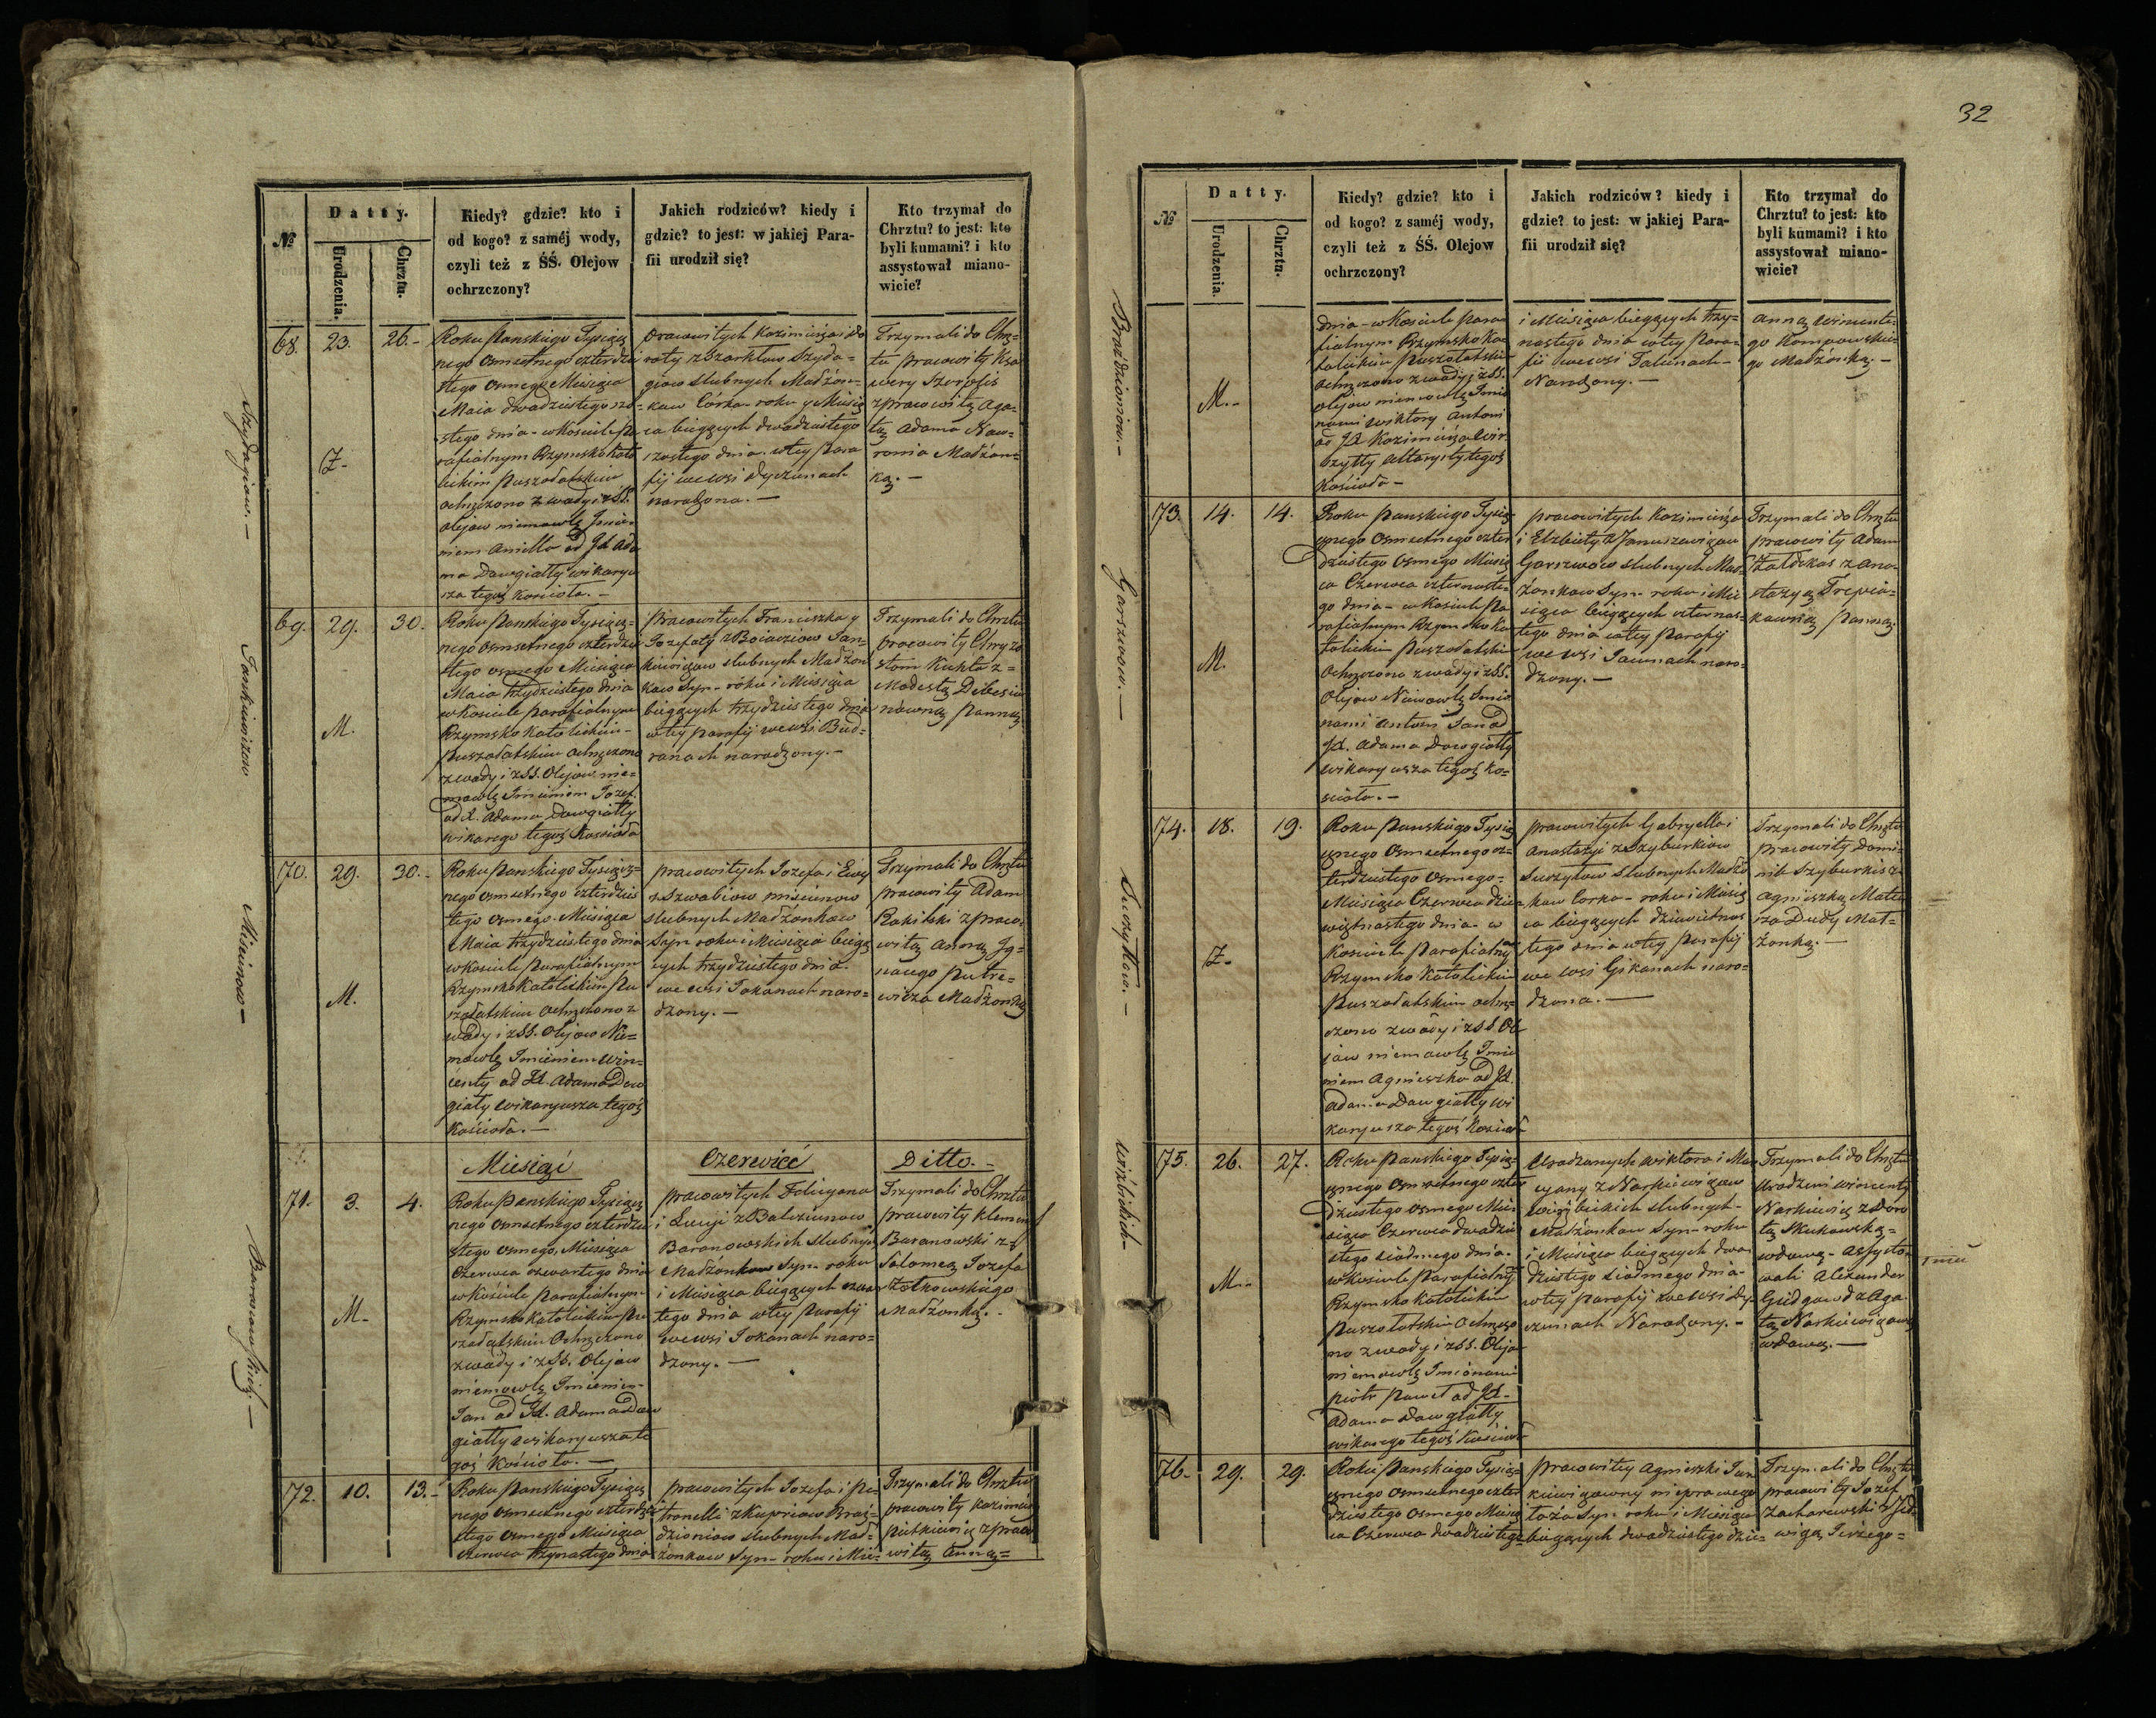 32
№
Datty.
Urodzenia.
Chrztu.
Kiedy? gdzie? kto i
od kogo? z saméj wody,
czyli też z ŚŚ. Olejow
ochrzczony?
Jakich rodziców? kiedy i
gdzie? to jest: w jakiej Para-
fii urodził się?
Kto trzymał do
Chrztu? to jest: kto
byli kumami? i kto
assystował miano-
wicie?
Szydagiow. –
68.
23.
26. –
Ż –
Roku Panskiego Tysiącz
nego Osmsetnego czterdzie
stego Osmego Miesiąca
Maia dwadziestego szo-
stego dnia – w Kościele Pa
rafialnym Rzymsko Kato
lickim Puszołatskim
Ochrzczono z wody i z SS.
Olejow niemowlę Imie-
niem Aniella od JX Ada
ma Dowgiałły wikaryu
sza tegoż Kościoła. –
Pracowitych Kazimierza i Do
roty z Szarktow Szyda-
giow Slubnych Małżon-
kow Córka – roku y Miesią
ca bieżących dwadziestego
szostego dnia – w tey Para
fij we wsi Dyczunach
narodzona. –
Trzymali do Chrz-
tu Pracowity Ksa
wery Szerofis
z pracowitą Aga-
tą Adama Naw-
ronia Małżon-
ką. –
Jankiewiczow
69.
29.
30.
M.
Roku Panskiego Tysiącz-
nego Osmsetnego czterdzie
stego osmego Miesiąca
Maia trzydziestego dnia
w Kościele parafialnym
Rzymsko Katolickim –
Puszołatskim Ochrzczono
z wody i z SS. Olejow nie-
mowlę Imieniem Jozef.
od X. Adama Dowgiałły
wikarego tegoż Kościoła
Pracowitych Franciszka y
Jozefaty z Boiarziow Jan-
kiewiczow slubnych Małżon
kow Syn – roku i Miesiąca
bieżących trzydziestego dnia
w tey parafij we wsi Bud-
ranach narodzony. –
Trzymali do Chrztu
Pracowity Chryzo
stom Kuhta z-
Modestą Dilesiu
nowną Panną
Misiunow –
70.
29.
30. –
M.
Roku Panskiego Tysiącz-
nego Osmsetnego czterdzies
tego Osmego – Miesiąca
Maia trzydziestego dnia
w Kościele Parafialnym
Rzymsko Katolickim Pu
szołatskim Ochrzczono z
wody i z SS. Olejow Nie-
mowlę Imieniem Win-
centy od JX. Adama Dow
giały wikaryusza tegoż
Kościoła. –
Pracowitych Jozefa i Ewy
z Szwabiow Misiunow
Slubnych Małżonkow
Syn roku i Miesiąca bieżą
cych trzydziestego dnia.
we wsi Jokanach naro-
dzony. –
Trzymali do Chrztu
pracowity Adam
Rakicki z praco-
witą Anną Ig-
nacego Putre-
wicza Małżonką
Miesiąć
Czerwieć
Ditto. –
Baranowskich. –
71.
3.
4.
M –
Roku Panskiego Tysiącz
nego Osmsetnego czterdzie
stego Osmego, Miesiąca
Czerwca czwartego dnia
w Kościele parafialnym
Rzymsko Katolickim Pu
szołatskim Ochrzczono
z wody i z SS. Olejow
niemowlę Imieniem –
Jan od JX. Adama Dow
giałły wikaryusza te
goż Kościoła. –
pracowitych Felicyana
i Lucyi z Balcziunow
Baranowskich Slubnych
Małżonkow Syn – roku
i Miesiąca bieżących czwar
tego dnia w tey Parafij
we wsi Jokanach naro-
dzony. –
Trzymali do Chrztu
pracowity Klemens
Baranowski z
Salomeą Jozefa
Żołkowskiego
Małżonką. –
72.
10.
13. –
Roku Panskiego Tysiącz
nego Osmsetnego czterdzie
stego Osmego Miesiąca
Czerwca trzynastego dnia
pracowitych Jozefa i Pe-
tronelli z Kupriow Braź-
dzioniow Slubnych Mał-
żonkow Syn – roku i Mie-
Trzymali do Chrztu
pracowity Kazimierz
Pietkiewicz z praco
witą Anną-
№
Datty.
Urodzenia.
Chrztu.
Kiedy? gdzie? kto i
od kogo? z saméj wody,
czyli też z ŚŚ. Olejow
ochrzczony?
Jakich rodziców? kiedy i
gdzie? to jest: w jakiej Para-
fii urodził się?
Kto trzymał do
Chrztu? to jest: kto
byli kumami? i kto
assystował miano-
wicie?
Braździoniow. –
M. –
dnia – w Kościele para
fialnym Rzymsko Ka
tolickim Puszołatskim
Ochrzczono z wody i z SS.
Olejow niemowlę Imio
nami Wiktory Antoni
od JX Kazimierza Wir
szyłły Altarysty tegoż
Kościoła –
i Miesiąca bieżących trzy-
nastego dnia w tey Para-
fij we wsi Talunach –
Narodzony. –
Anną Wincente-
go Rompowskie-
go Małżonką. –
Garszwow. –
73.
14.
14.
M.
Roku Panskiego Tysią
cznego Osmsetnego czter
dziestego Osmego Miesią
ca Czerwca czternaste-
go dnia – w Kościele Pa
rafialnym Rzymsko Ka
tolickim Puszołatskim
Ochrzczono z wody i z SS.
Olejow Niemowlę Imio
nami Antoni Jan od
JX. Adama Dowgiałły
wikaryusza tegoż Ko-
ścioła. –
pracowitych Kazimierza
i Elzbiety z Januszewiczow
Garszwow slubnych Mał-
żonkow Syn – roku i Mie
siąca bieżących czternas-
tego dnia w tey Parafij
we wsi Jaunach naro-
dzony. –
Trzymali do Chrztu
pracowity Adam
Żałdokas z Ana-
stazyą Trepia-
kawną Panną.
Suszyłow. –
74.
18.
19.
Ż –
Roku Panskiego Tysią
cznego Osmsetnego cz-
terdziestego Osmego –
Miesiąca Czerwca dzie
więtnastego dnia – w
Kościele Parafialnym
Rzymsko Katolickim
Puszołatskim ochrz-
czono z wody i z SS. Ol
jow niemowlę Imie
niem Agnieszka od JX.
Adama Dowgiałły wi
karyusza tegoż Kościoła
pracowitych Gabryella i
Anastazyi z Szyburkiow
Suszyłow Slubnych Małżo
nkow Corka – roku i Miesią
ca bieżących dziewietnas
tego dnia w tey Parafij
we wsi Gikanach naro-
dzona. –
Trzymali do Chrztu
Pracowity Domi-
nik Szyburkis z
Agnieszką Mateu
sza Dudy Mał-
żonką. –
75.
26.
27.
M. –
Roku Panskiego Tysią-
cznego Osmsetnego czter
dziestego Osmego Mie
siąca Czerwca dwadzie
stego siodmego dnia –
w Kościele Parafialnym
Rzymsko Katolickim
Puszołatskim Ochrzczo
no z wody i z SS. Olejow
niemowlę Imionami
Piotr Paweł od JX –
Adama Dowgiałły
wikarego tegoż Kościoła
Urodzonych Wiktora i Ma
cyany z Narkiewiczow
slubnych –
Małżonkow Syn – roku
i Miesiąca bieżących dwa
dziestego siodmego dnia –
w tey parafij we wsi Dy-
czunach Narodzony. –
Trzymali do Chrztu
Urodzeni Wincenty
Narkiewicz z Doro
tą Skukowską-
wdową – Assysto-
wali Alexander
Giedgowd z Aga
tą Narkiewiczową
wdową. –
76 –
29.
29.
Roku Panskiego Tysią-
cznego Osmsetnego czter
dziestego Osmego Miesią
ca Czerwca dwadziestego
Pracowitey Agnieszki Jan
kiewiczowny nieprawego
łoża Syn – roku i Miesiąca
bieżących dwadziestego dzie-
Trzymali do Chrztu
pracowity Jozef
Zacharewski z Jad
wigą Jerzego-